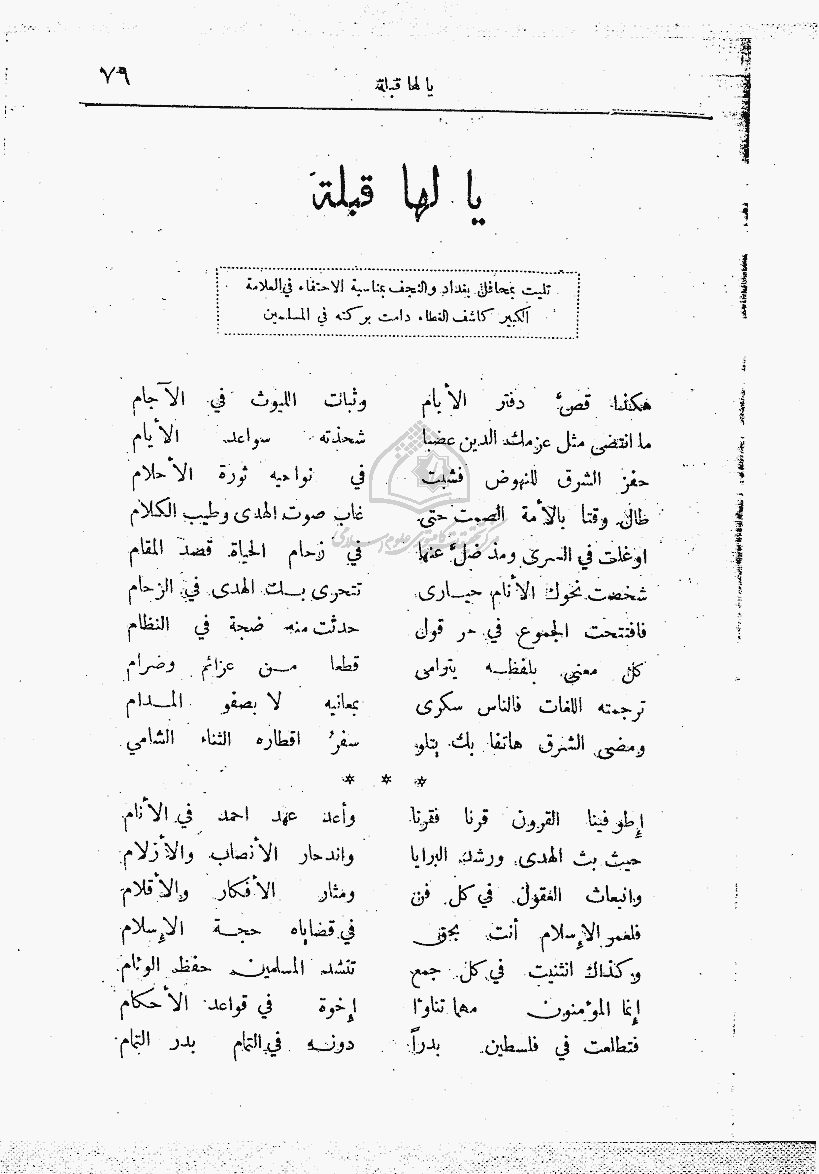 ٧٩
يا لها قبلة
يا لها قبلة
تليت بمحافل بغداد والنجف بمناسبة الاحتفاء في العلامة
الكبير كاشف الغطاء دامت بركته في المسلمين
هكذا قصَّ دفتر الأيام وثبات الليوث في الآجام
ما انتضى مثل عزمك الدين عضبا شحذته سواعد الأيام
حفز الشرق للنهوض فشبت في نواحيه ثورة الأحلام
طال وقتا بالأمة الصمت حتى غاب صوت الهدى وطيب الكلام
اوغلت في السرى ومذ ضلَّ عنها في زحام الحياة قصد المقام
شخصت نحوك الأنام حيارى تتحرى بك الهدى في الزحام
فافتتحت الجموع في حر قول حدثت منه ضجة في النظام
كل معنى بلفظه يترامى قطعا من عزائم وضرام
ترجمته اللغات فالناس سكرى بمعانيه لا بصفو المدام
ومضى الشرق هاتفا بك يتلو سفرُ اقطاره الثناء الشامي
* * *
إطو فينا القرون قرنا فقرنا وأعد عهد احمد في الأنام
حيث بث الهدى ورشد البرايا واندحار الأنصاب والأزلام
وانبعاث العقول في كل فن ومثار الأفكار والأقلام
فلعمر الإسلام أنت بحق في قضاياه حجة الإسلام
وكذاك انثنيت في كل جمع تنشد المسلمين حفظ الوئام
إنما المؤمنون مهما تناوا إخوة في قواعد الأحكام
فتطلعت في فلسطين بدراً دونه في التمام بدر التمام